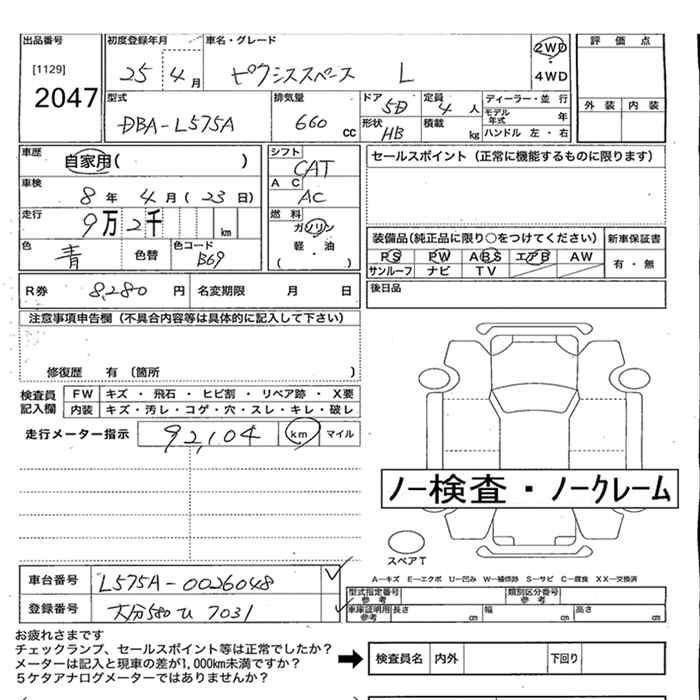 出品番号 初度登録年月 車名・グレード 評価点
[1129] 25年4月 ピクシススペース L 2WD・4WD
2047
型式 排気量 ドア 5D 定員 4人 ディーラー・並行 外装 内装
DBA-L575A 660cc 形状 HB 積載 kg モデル年式 年
ハンドル 左・右
車歴 自家用( ) シフト CAT セールスポイント(正常に機能するものに限ります)
車検 8年4月(23日) AC AC
走行 9万2千 km 燃料 ガソリン 装備品(純正品に限り○をつけてください) 新車保証書
軽・油 PS PW ABS エアB AW 有・無
色 青 色替 色コード B69 ( ) サンルーフ ナビ TV
R券 8,280円 名変期限 月 日 後日品
注意事項申告欄(不具合内容等は具体的に記入して下さい)
修復歴 有(箇所 )
検査員記入欄 FW キズ・飛石・ヒビ割・リペア跡・X要
内装 キズ・汚レ・コゲ・穴・スレ・キレ・破レ
走行メーター指示 92,104 km マイル
ノー検査・ノークレーム
スペアT
A―キズ E―エクボ U―凹み W―補修跡 S―サビ C―腐食 XX―交換済
車台番号 L575A-0026048
型式指定番号 参考 類別区分番号 参考
登録番号 大分580 U 7031
車庫証明用 参考 長さ cm 幅 cm 高さ cm
お疲れさまです
チェックランプ、セールスポイント等は正常でしたか?
メーターは記入と現車の差が1,000km未満ですか?
5ケタアナログメーターではありませんか?
検査員名 内外 下回り